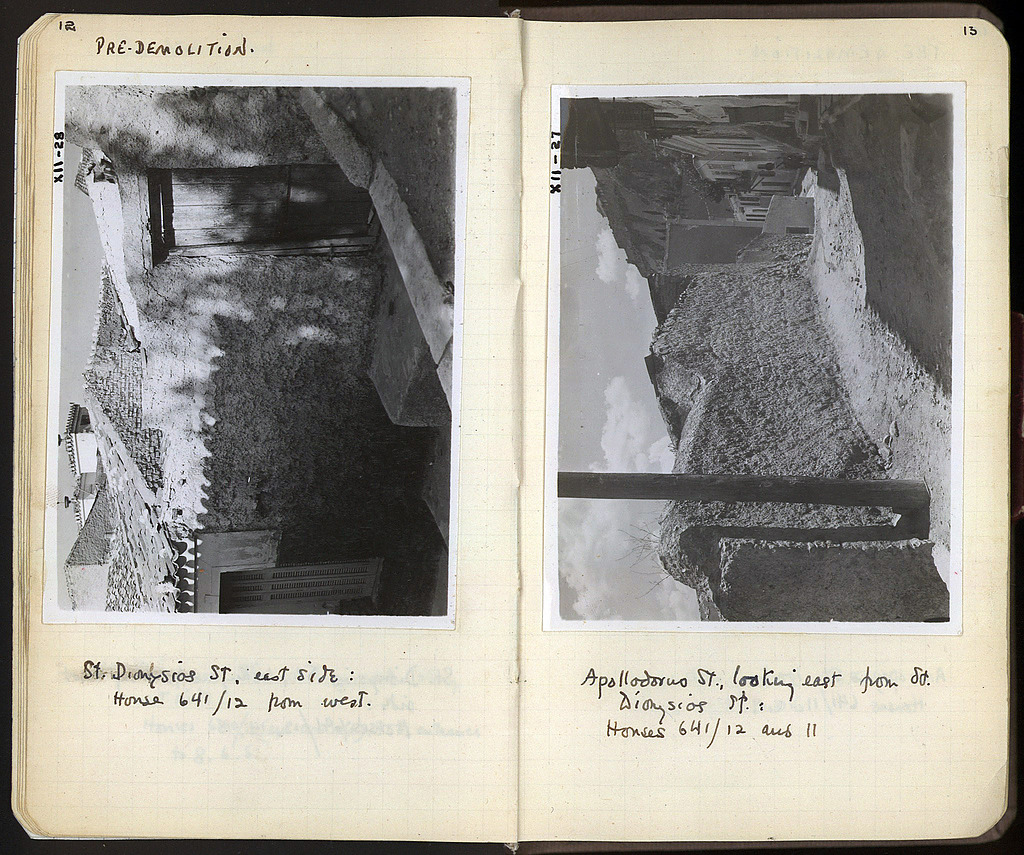 12
PRE-DEMOLITION.
XII-28
St. Dionysios St, east side:
House 641/12 from west.
13
XII-27
Apollodorus St., looking east from St.
Dionysios St.:
Houses 641/12 and 11